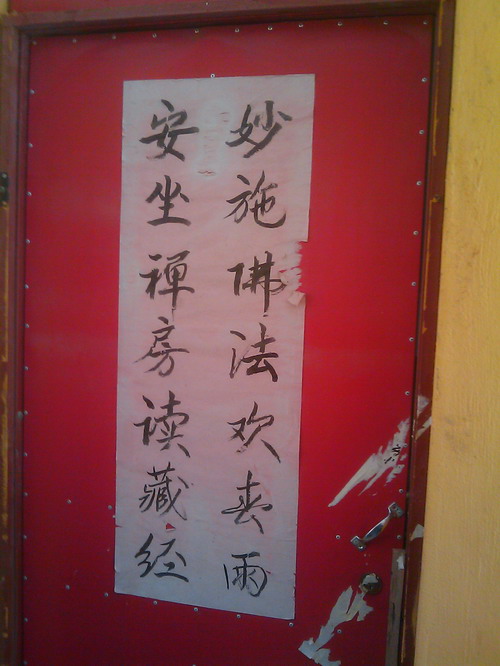 妙施佛法欢喜雨
安坐禅房读藏经